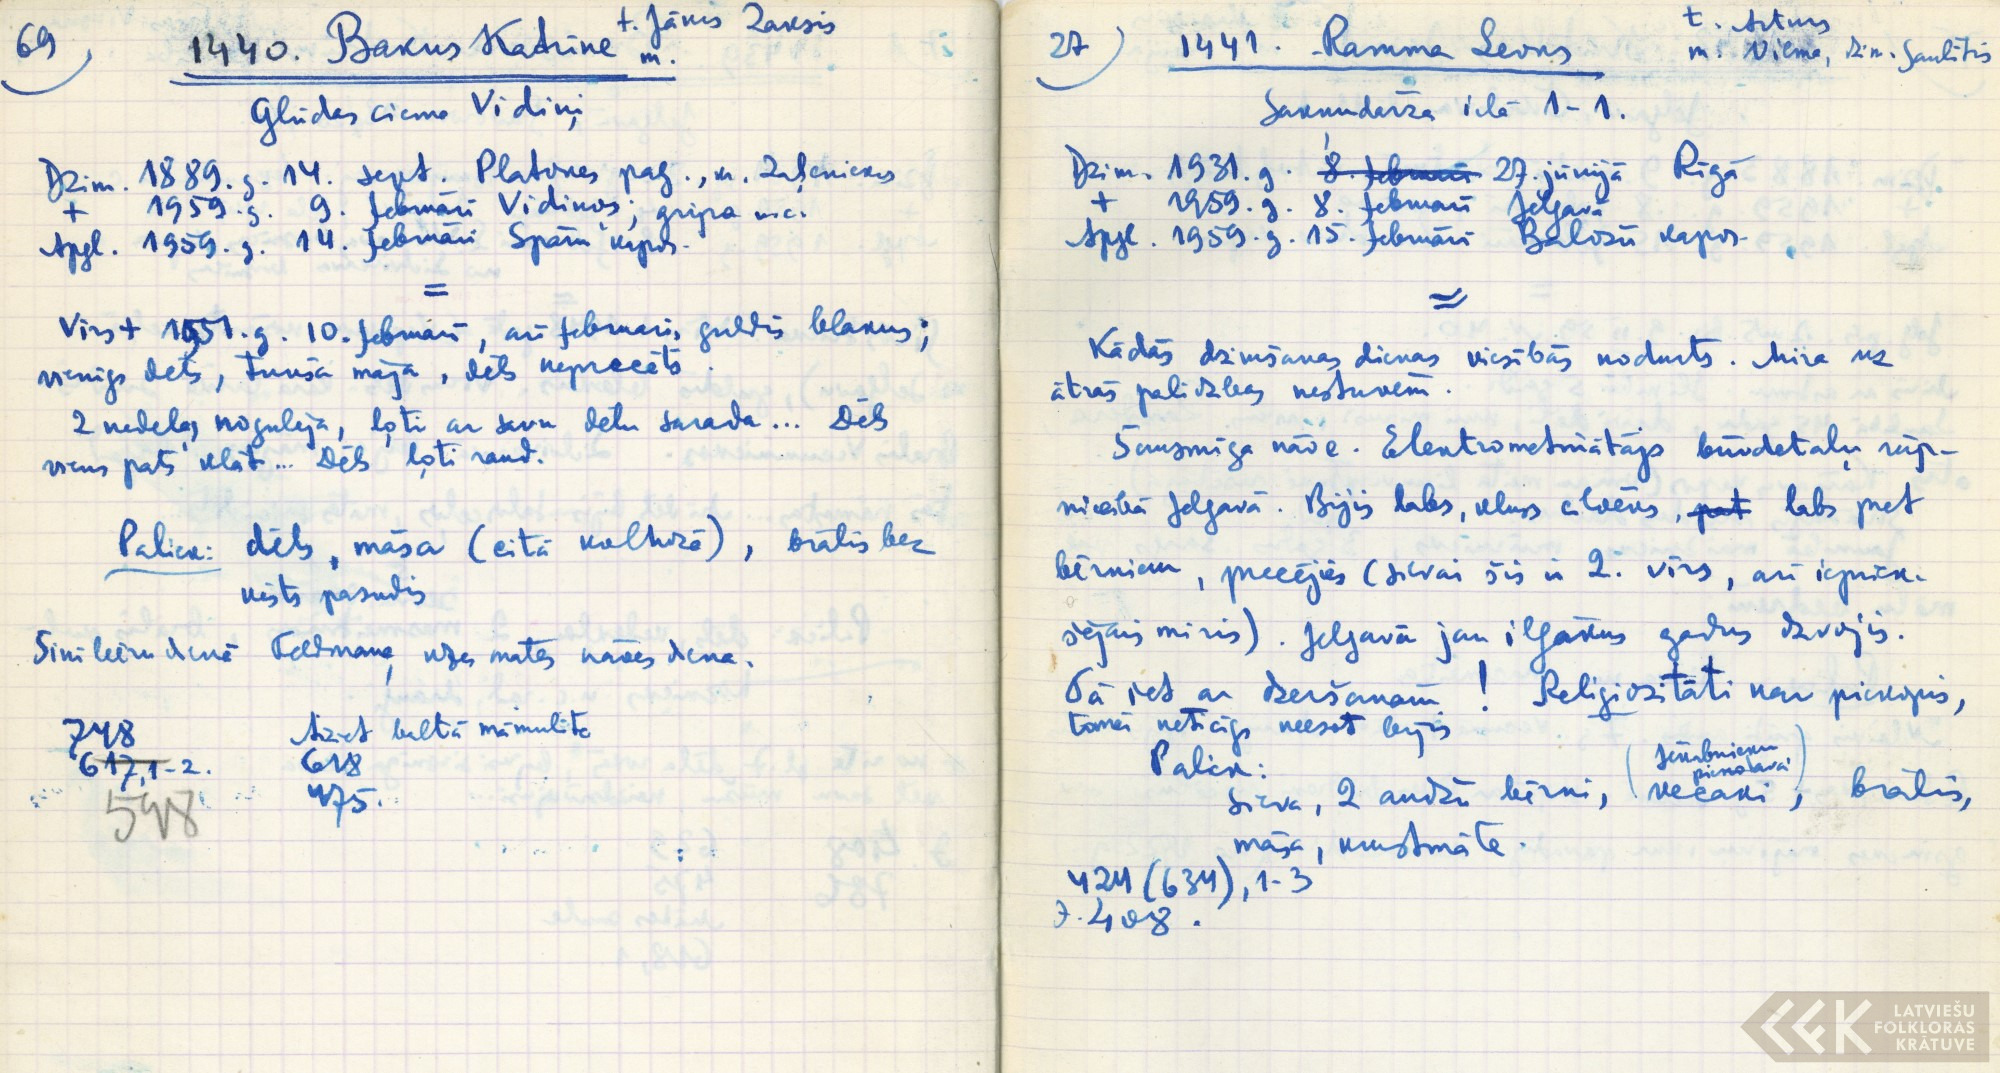 69) 1440. Bakus Katrīne t. Jānis Zaksis
m.
Glūdas ciema Vidiņi
Dzim. 1889. g. 14. sept. Platones pag., m. Zaļeniekos
+ 1959. g. 9. februārī Vidiņos; gripa
Apgl. 1959. g. 14. februārī Spāru kapos.
=
Vīrs + 1951. g. 10. februārī, arī februārī, guldīs blakus;
vienīgs dēls, tukša māja, dēls neprecēts.
2 nedēļas nogulēja, ļoti ar savu dēlu sarada... Dēls
viens pats klāt... Dēls ļoti raud.
Paliek: dēls, māsa (citā kolhozā), brālis bez
vēsts pazudis
Feldmane, mātes nāves diena.
748 Aiziet baltā māmulīte
617, 1-2. 618
548 475.
27) 1441. Ramma Leons t. Arturs
m. Vilma, dzim. Saulītis
Sakņudārza ielā 1-1.
Dzim. 1931. g. 8. februārī 27. jūnijā Rīgā
+ 1959. g. 8. februārī Jelgavā
Apgl. 1959. g. 15. februārī Baložu kapos.
=
Kādās dzimšanas dienas viesībās nodurts. Mira uz
ātrās palīdzības nestuvēm.
Šausmīga nāve. Elektrometinātājs būvdetaļu rūp-
niecībā Jelgavā. Bijis labs, kluss cilvēks, pat labs pret
bērniem, precējies (sievai šis ir 2. vīrs, arī iepriek-
šējais miris). Jelgavā jau ilgākus gadus dzīvojis.
Tā iet ar dzeršanām! Religiozitāti nav piekopis,
tomēr neticīgs neesot bijis
Paliek: (Jēkabnieku
pienotavā)
sieva, 2 audžu bērni, vecāki, brālis,
māsa, krustmāte.
424 (634), 1-3
J. 408.
LATVIEŠU
FOLKLORAS
KRĀTUVE